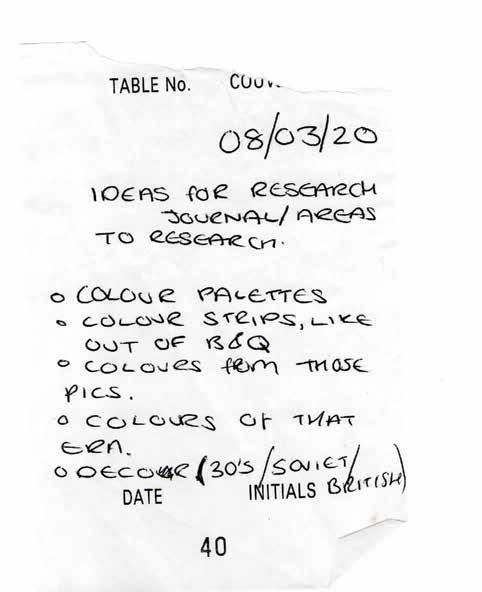 TABLE No. COUV
08/03/20
IDEAS FOR RESEARCH
JOURNAL/AREAS
TO RESEARCH.
o COLOUR PALETTES
o COLOUR STRIPS, LIKE
OUT OF B&Q
o COLOURS FROM THOSE
PICS.
o COLOURS OF THAT
ERA.
o DECOUR (30'S/SOVIET/
BRITISH)
DATE INITIALS
40